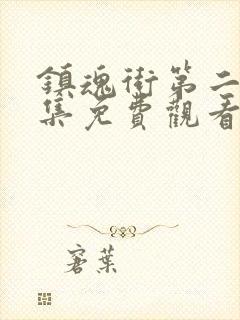 鎮魂街第二
集免費觀看
寒葉